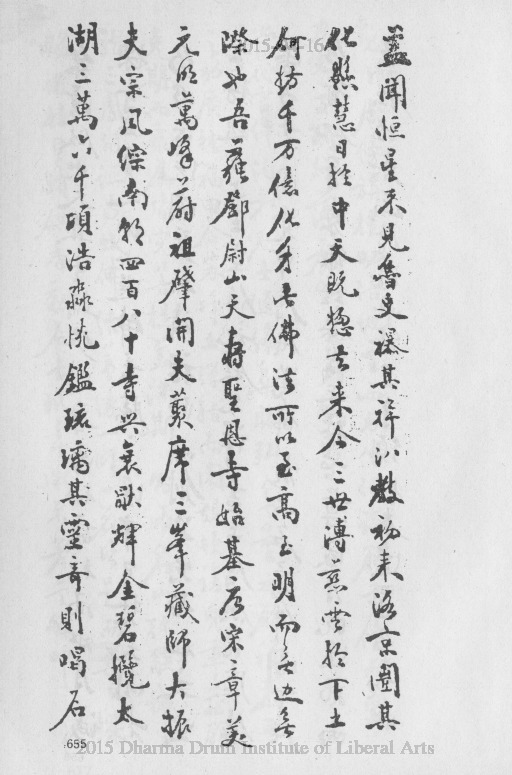 蓋聞恒星不見魯史瀑其祥八教初来洛京闡其
化懸慧日於中天既揔去来今三世溥慈雲於下土
何妨千万億化身者佛法所以至高至明而無边無
際也吾蘇鄧尉山天壽聖恩寺始基於宋章美
元明萬峰蔚祖肇開夫蒭席三峯藏師大振
夫宗风保南朝四百八十寺興衰獣輝金碧攬太
湖三萬六千頃浩淼恍鑑琉璃其靈奇則喝石
655
2015 Dharma Drum Institute of Liberal Arts